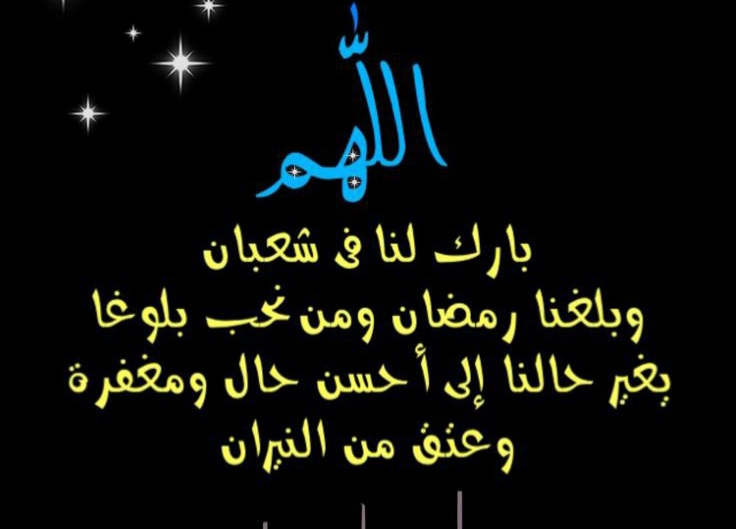 اللهم
بارك لنا فى شعبان
وبلغنا رمضان ومن نحب بلوغا
يغير حالنا إلى أحسن حال ومغفرة
وعتق من النيران